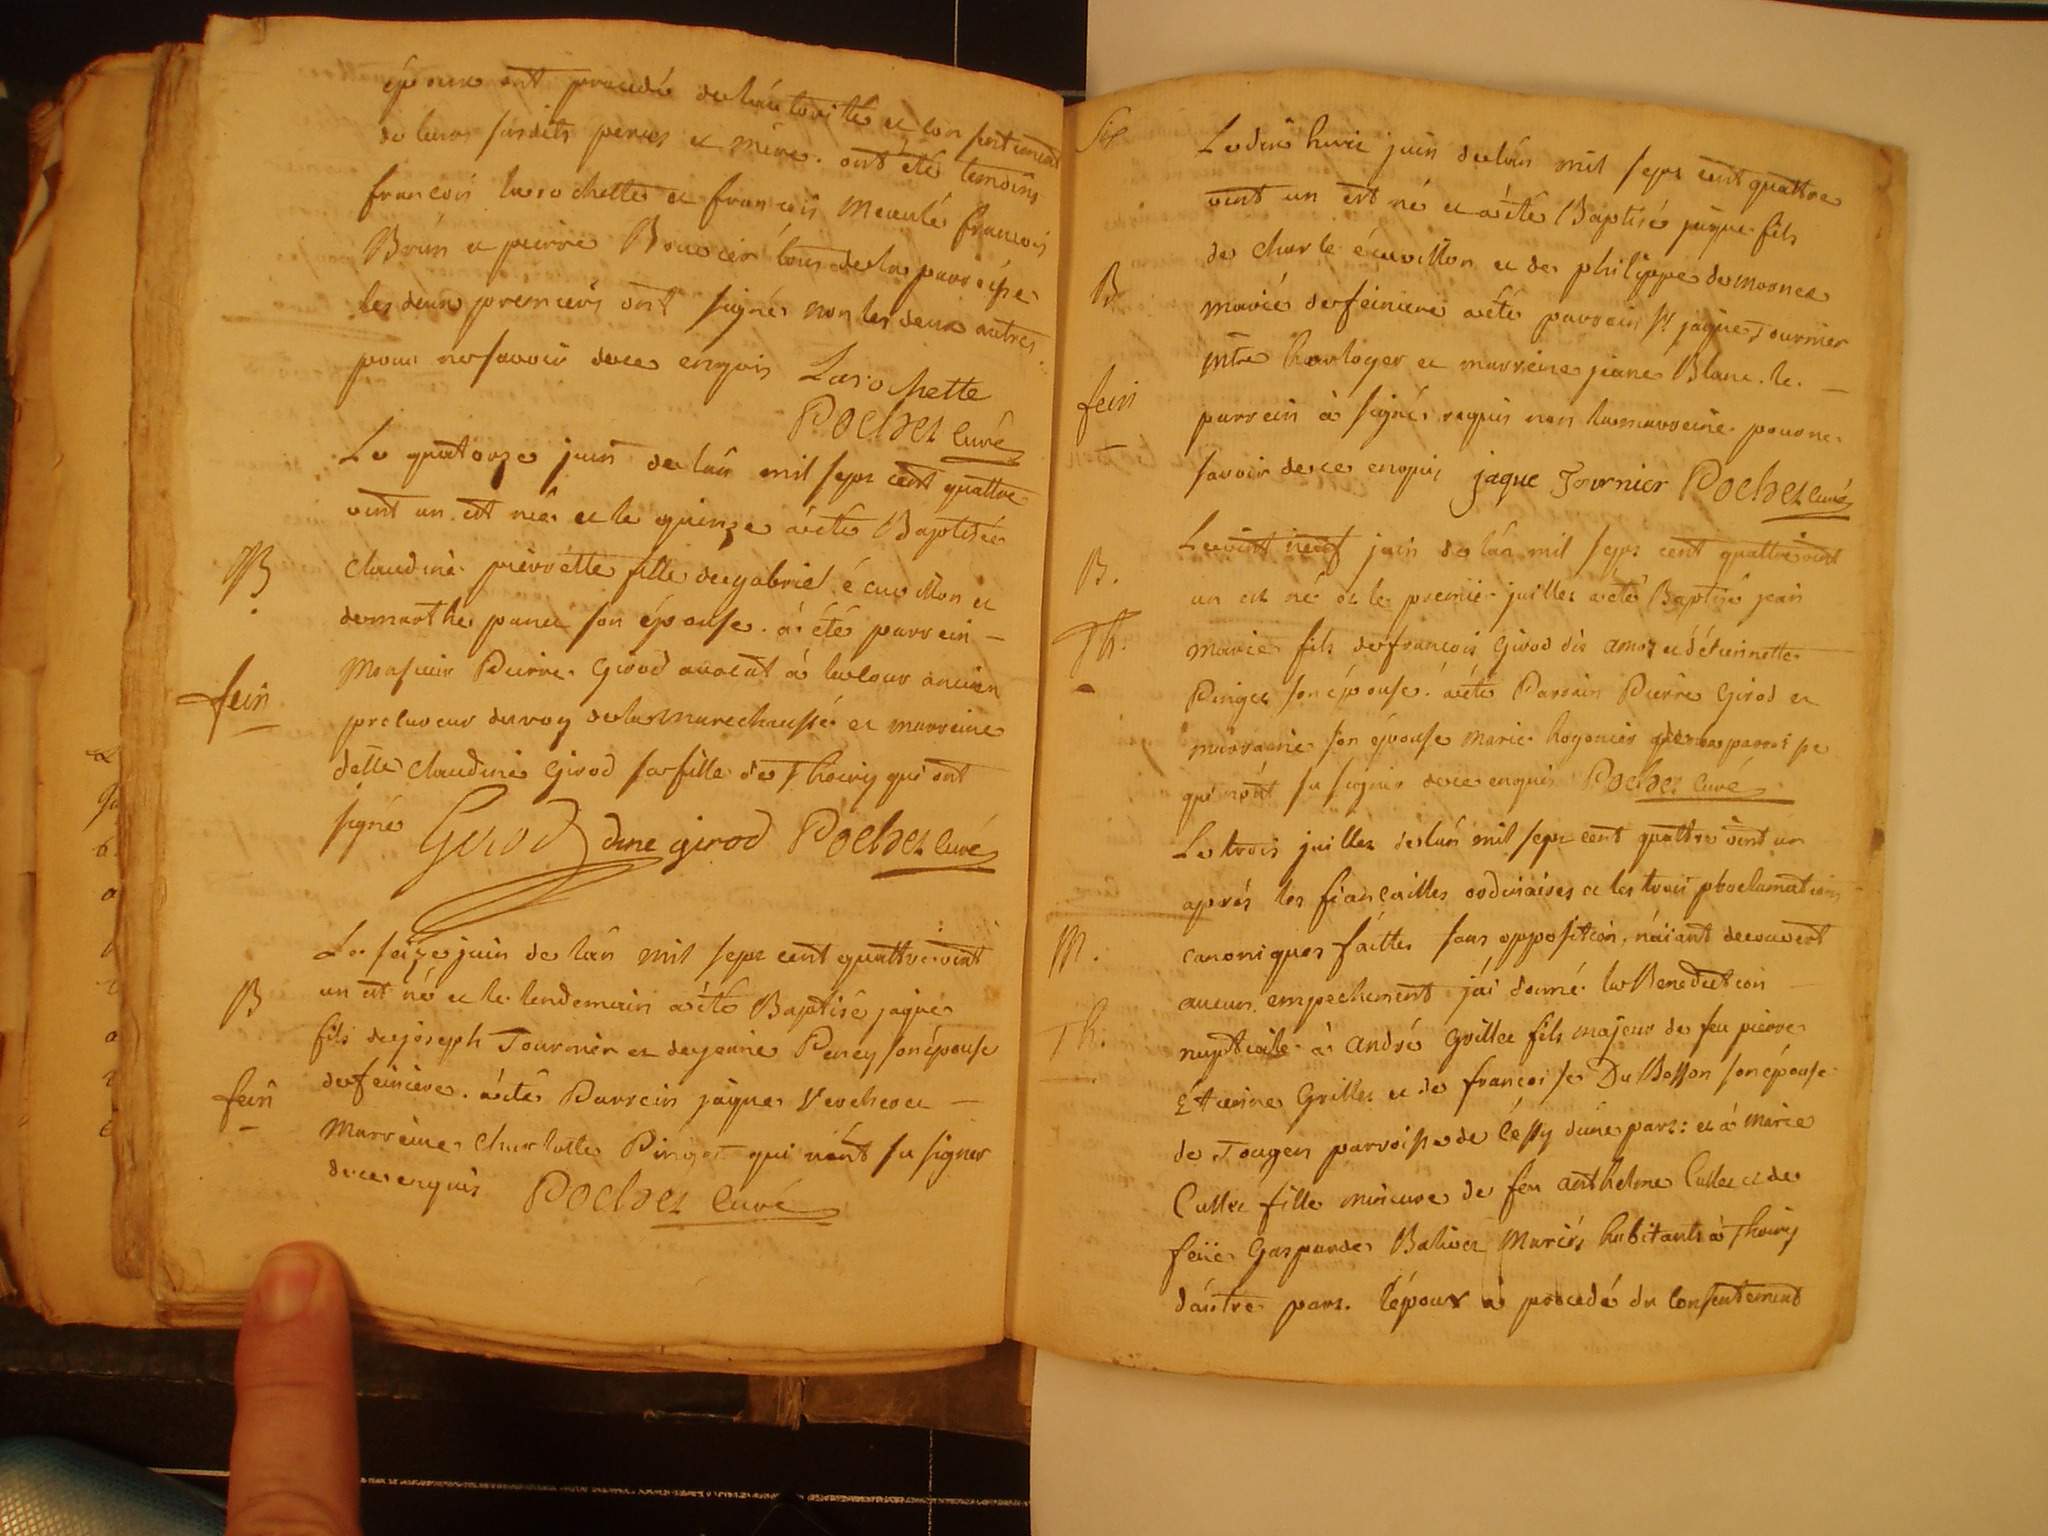 épouse ont procedé de lautorité et consentement
de leurs susdits peres et mere. ont été temoins
francois larochette et francois francois
Brun et pierre tous de la parroisse
les deux premiers ont signé non les deux autres
pour ne savoir de ce enquis Larochette
Pochet curé
Le quatorze juin de lan mil sept cent quattre
vint un est née et le quinze a été Baptisée
B
claudine pierrette fille de gabriel écuvillon et
de marthe panet son épouse. a été parrein
Monsieur Pierre Girod avocat a la cour ancien
fein
procureur du roy de la marechaussé et marreine
delle claudine Girod sa fille de Thoiry qui ont
signé Girod dine girod Pochet curé
Le seize juin de lan mil sept cent quattre vint
B
un est né et le lendemain a été Baptisé jaque
fils de joseph Tournier et de jeanne Peney son épouse
fein
de feiniere. a été Parrein jaque et
Marreine Charlotte Pinget qui n'ont su signer
de ce enquis Pochet curé
Le dix huit juin de lan mil sept cent quattre
vint un est né et a été Baptisé jaque fils
de charle écuvillon et de philippe demornex
B
mariés de feiniere a été parrein Sr jaque Tournier
mtre horloger et marreine jeane Blanc. le
fein
parrein a signé requis non la marreine pour ne
savoir de ce enquis jaque Tournier Pochet curé
Le vint neuf juin de lan mil sept cent quattre vint
B.
un est né et le premier juillet a été Baptisé jean
Th.
marie fils de francois Girod dit et d'étiennette
Pinget son épouse. a été Parrain Pierre Girod et
marraine son épouse marie parroisse
qui n'ont su signer de ce enquis Pochet curé
Le trois juillet de lan mil sept cent quattre vint un
aprés les fiançailles ordinaires et les trois proclamations
M.
canoniques faittes sans opposition, n'aïant decouvert
aucun empechement j'ai donné la Benediction
Th.
nuptiale à andré Grillet fils majeur de feu pierre
Étienne Grillet et de françoise DuBosson son épouse
de Tougin parroisse de céssy d'une part: et à marie
Cullet fille mineure de feu anthelme Cullet et de
feüe Gasparde Balivet Mariés habitants à Thoiry
d'autre part. l'époux a procedé du consentement